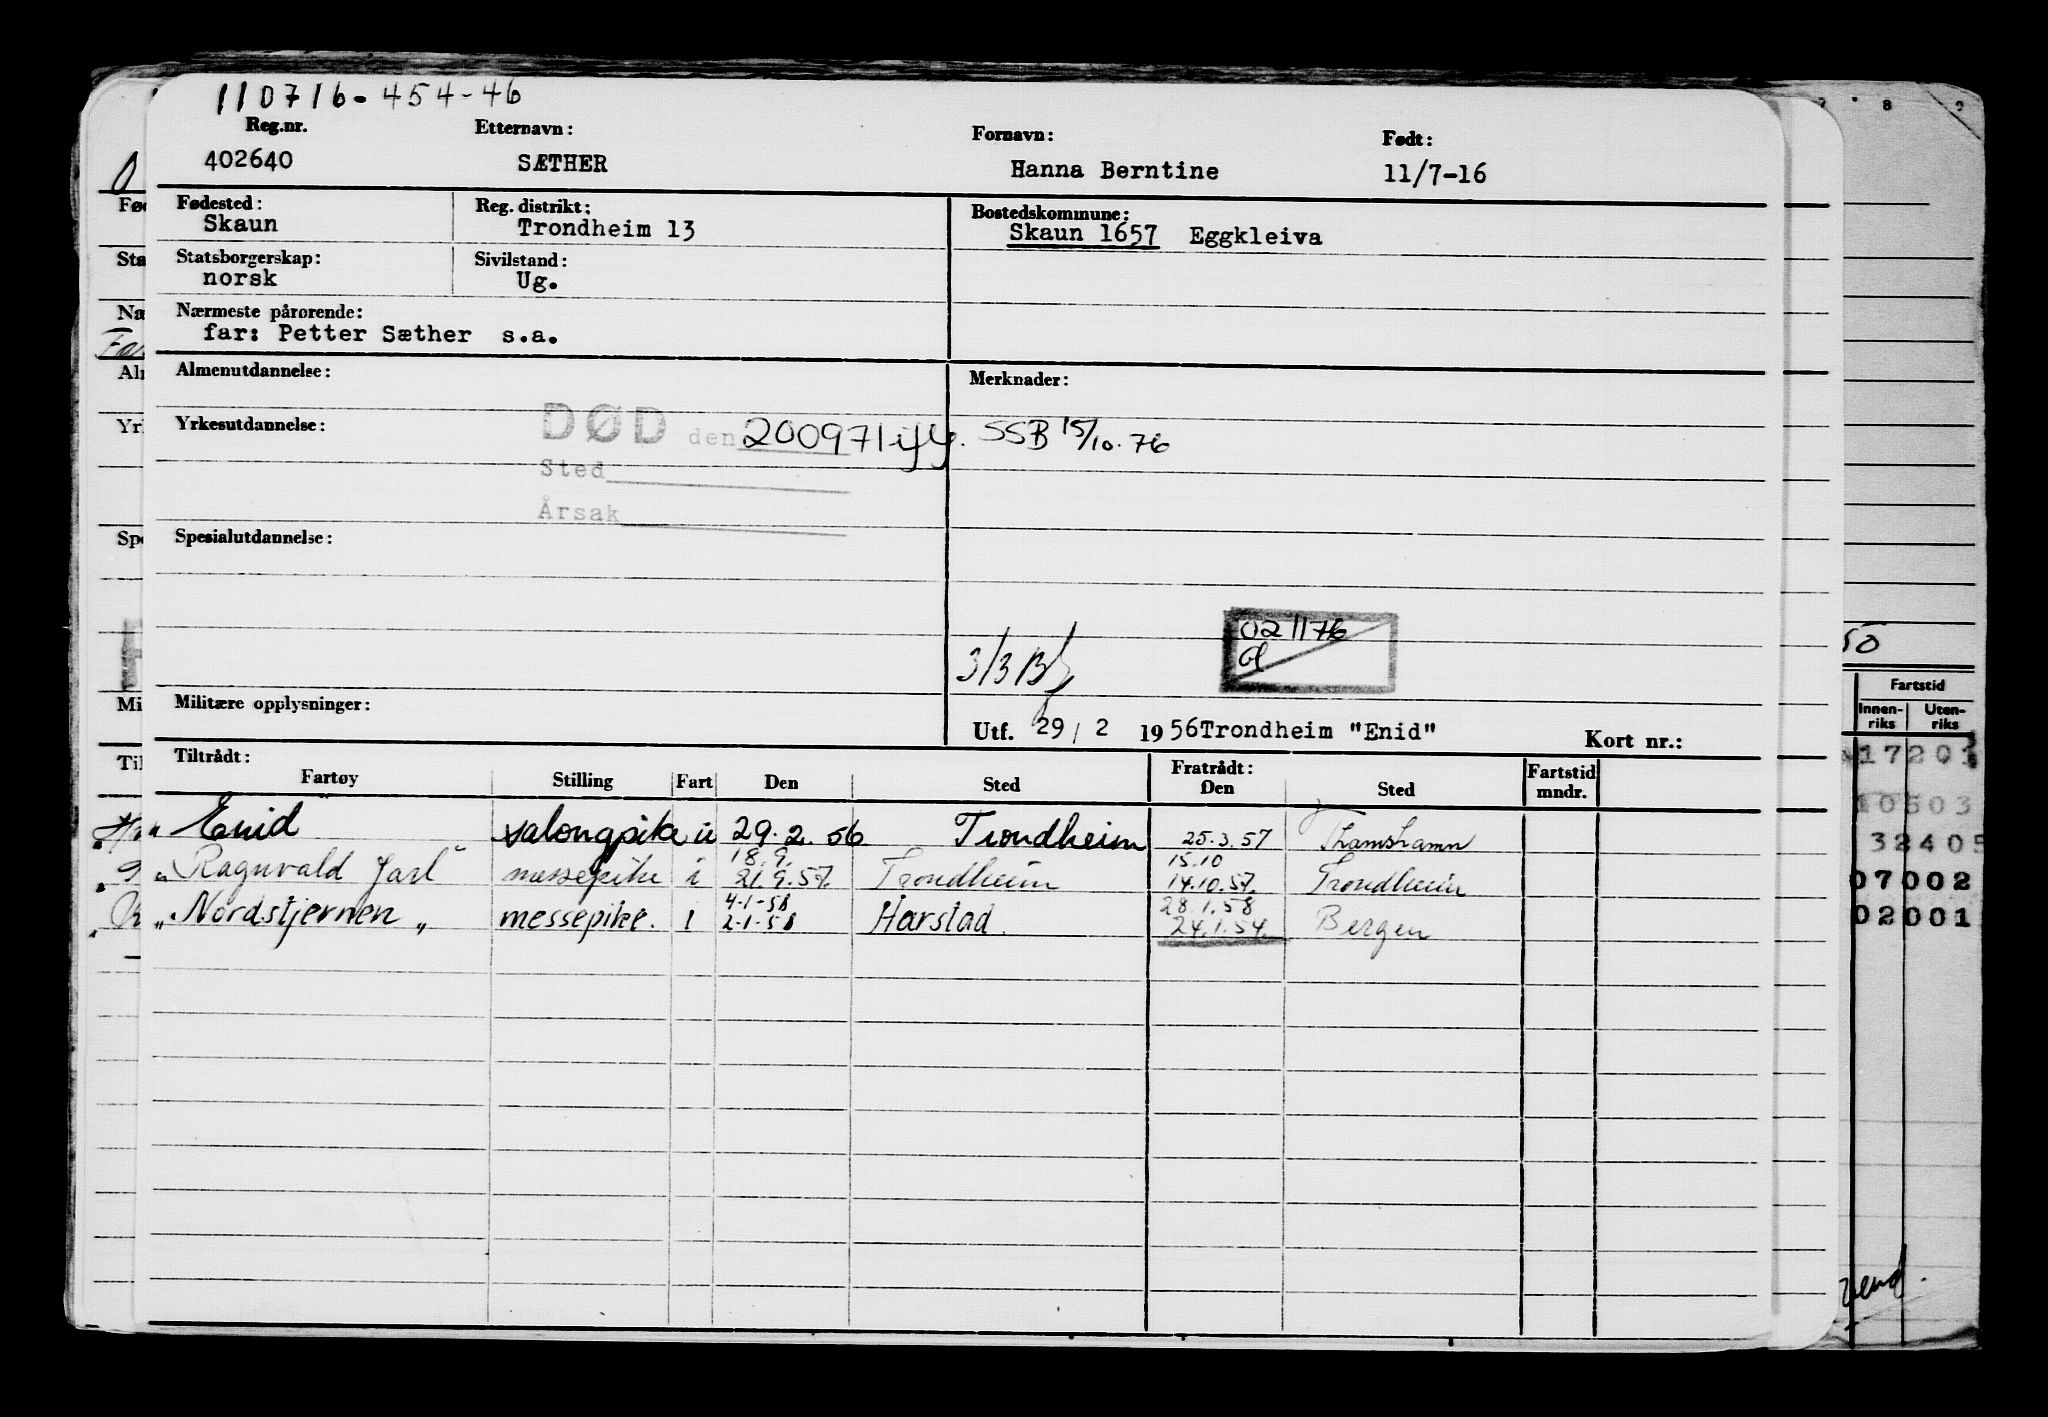 110716-454-46
Reg.nr. Etternavn: Fornavn: Født:
402640 SÆTHER Hanna Berntine 11/7-16
Fødested: Reg. distrikt: Bostedskommune:
Skaun Trondheim 13 Skaun 1657 Eggkleiva
Statsborgerskap: Sivilstand:
norsk Ug.
Nærmeste pårørende:
far: Petter Sæther s.a.
Almenutdannelse: Merknader:
Yrkesutdannelse: DØD den 200971 iflg. SSB 15/10.76
Sted
Årsak
Spesialutdannelse:
021176
3/3
Militære opplysninger:
Utf. 29/2 1956 Trondheim "Enid" Kort nr.:
Tiltrådt: Fratrådt: Fartstid
Fartøy Stilling Fart Den Sted Den Sted mndr.
"Enid" salongpike u 29.2.56 Trondheim 25.3.57 Thamshamn
18.9. 15.10
"Ragnvald Jarl" messepike i 21.9.57. Trondheim 14.10.57. Trondheim
4-1-58 28.1.58
"Nordstjernen" messepike. i 2-1-58 Harstad. 24.1.54. Bergen
8
50
Fartstid
Innen-riks Uten-riks
17201
10503
32405
07002
02001